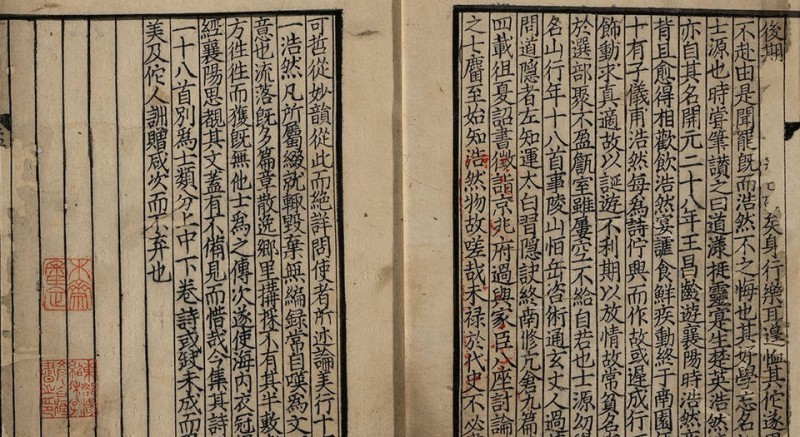 後期矣身行樂耳遑恤其佗遂
不赴由是聞罷既而浩然不之悔也其好學忘名
士源也時嘗筆讃之曰道漾挻靈寔生楚英浩然
亦自其名開元二十八年王昌齡遊襄陽時浩然
背且愈得相歡飲浩然宴謔食鮮疾動終于南園年
十有子儀甫浩然每為詩佇興而作故或遲成
飾動求真適故以誕遊不利期以放情故常貧名
於選部聚不盈甔室雖屢空不給自若也士源幼
名山行年十八首事陵山恒岳咨術通玄丈人過
問道隱者左知運太白習隱訣終南修亢倉九篇
四載徂夏詔書徵詣京兆府過與家臣八座討論
之士麏至始知浩然物故嗟哉未祿於代史不必
可哲從妙韻從此而絕詳問使者所述論美行十
一浩然凡所屬綴就輒毀棄無編録常自嘆為文
意也流落既多篇章散逸鄉里搆採不有其半敷
方徃徃而獲既無他士為之傳次遂使海内衣冠
經襄陽思覩其文蓋有不備見而惜哉今集其詩
一十八首別為士類分上中下卷詩或闕未成而
美及佗人詶贈咸次而不弃也